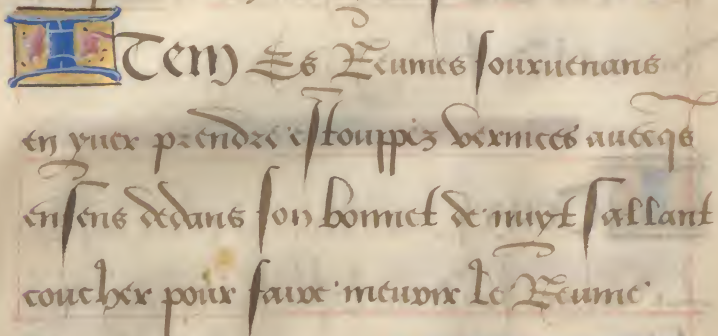 Item Es Reumes souruenans
en yuer prendre estouppez vernices auecqs
ensens dedans son bonnet de nuyt sallant
coucher pour faire meurir le Reume